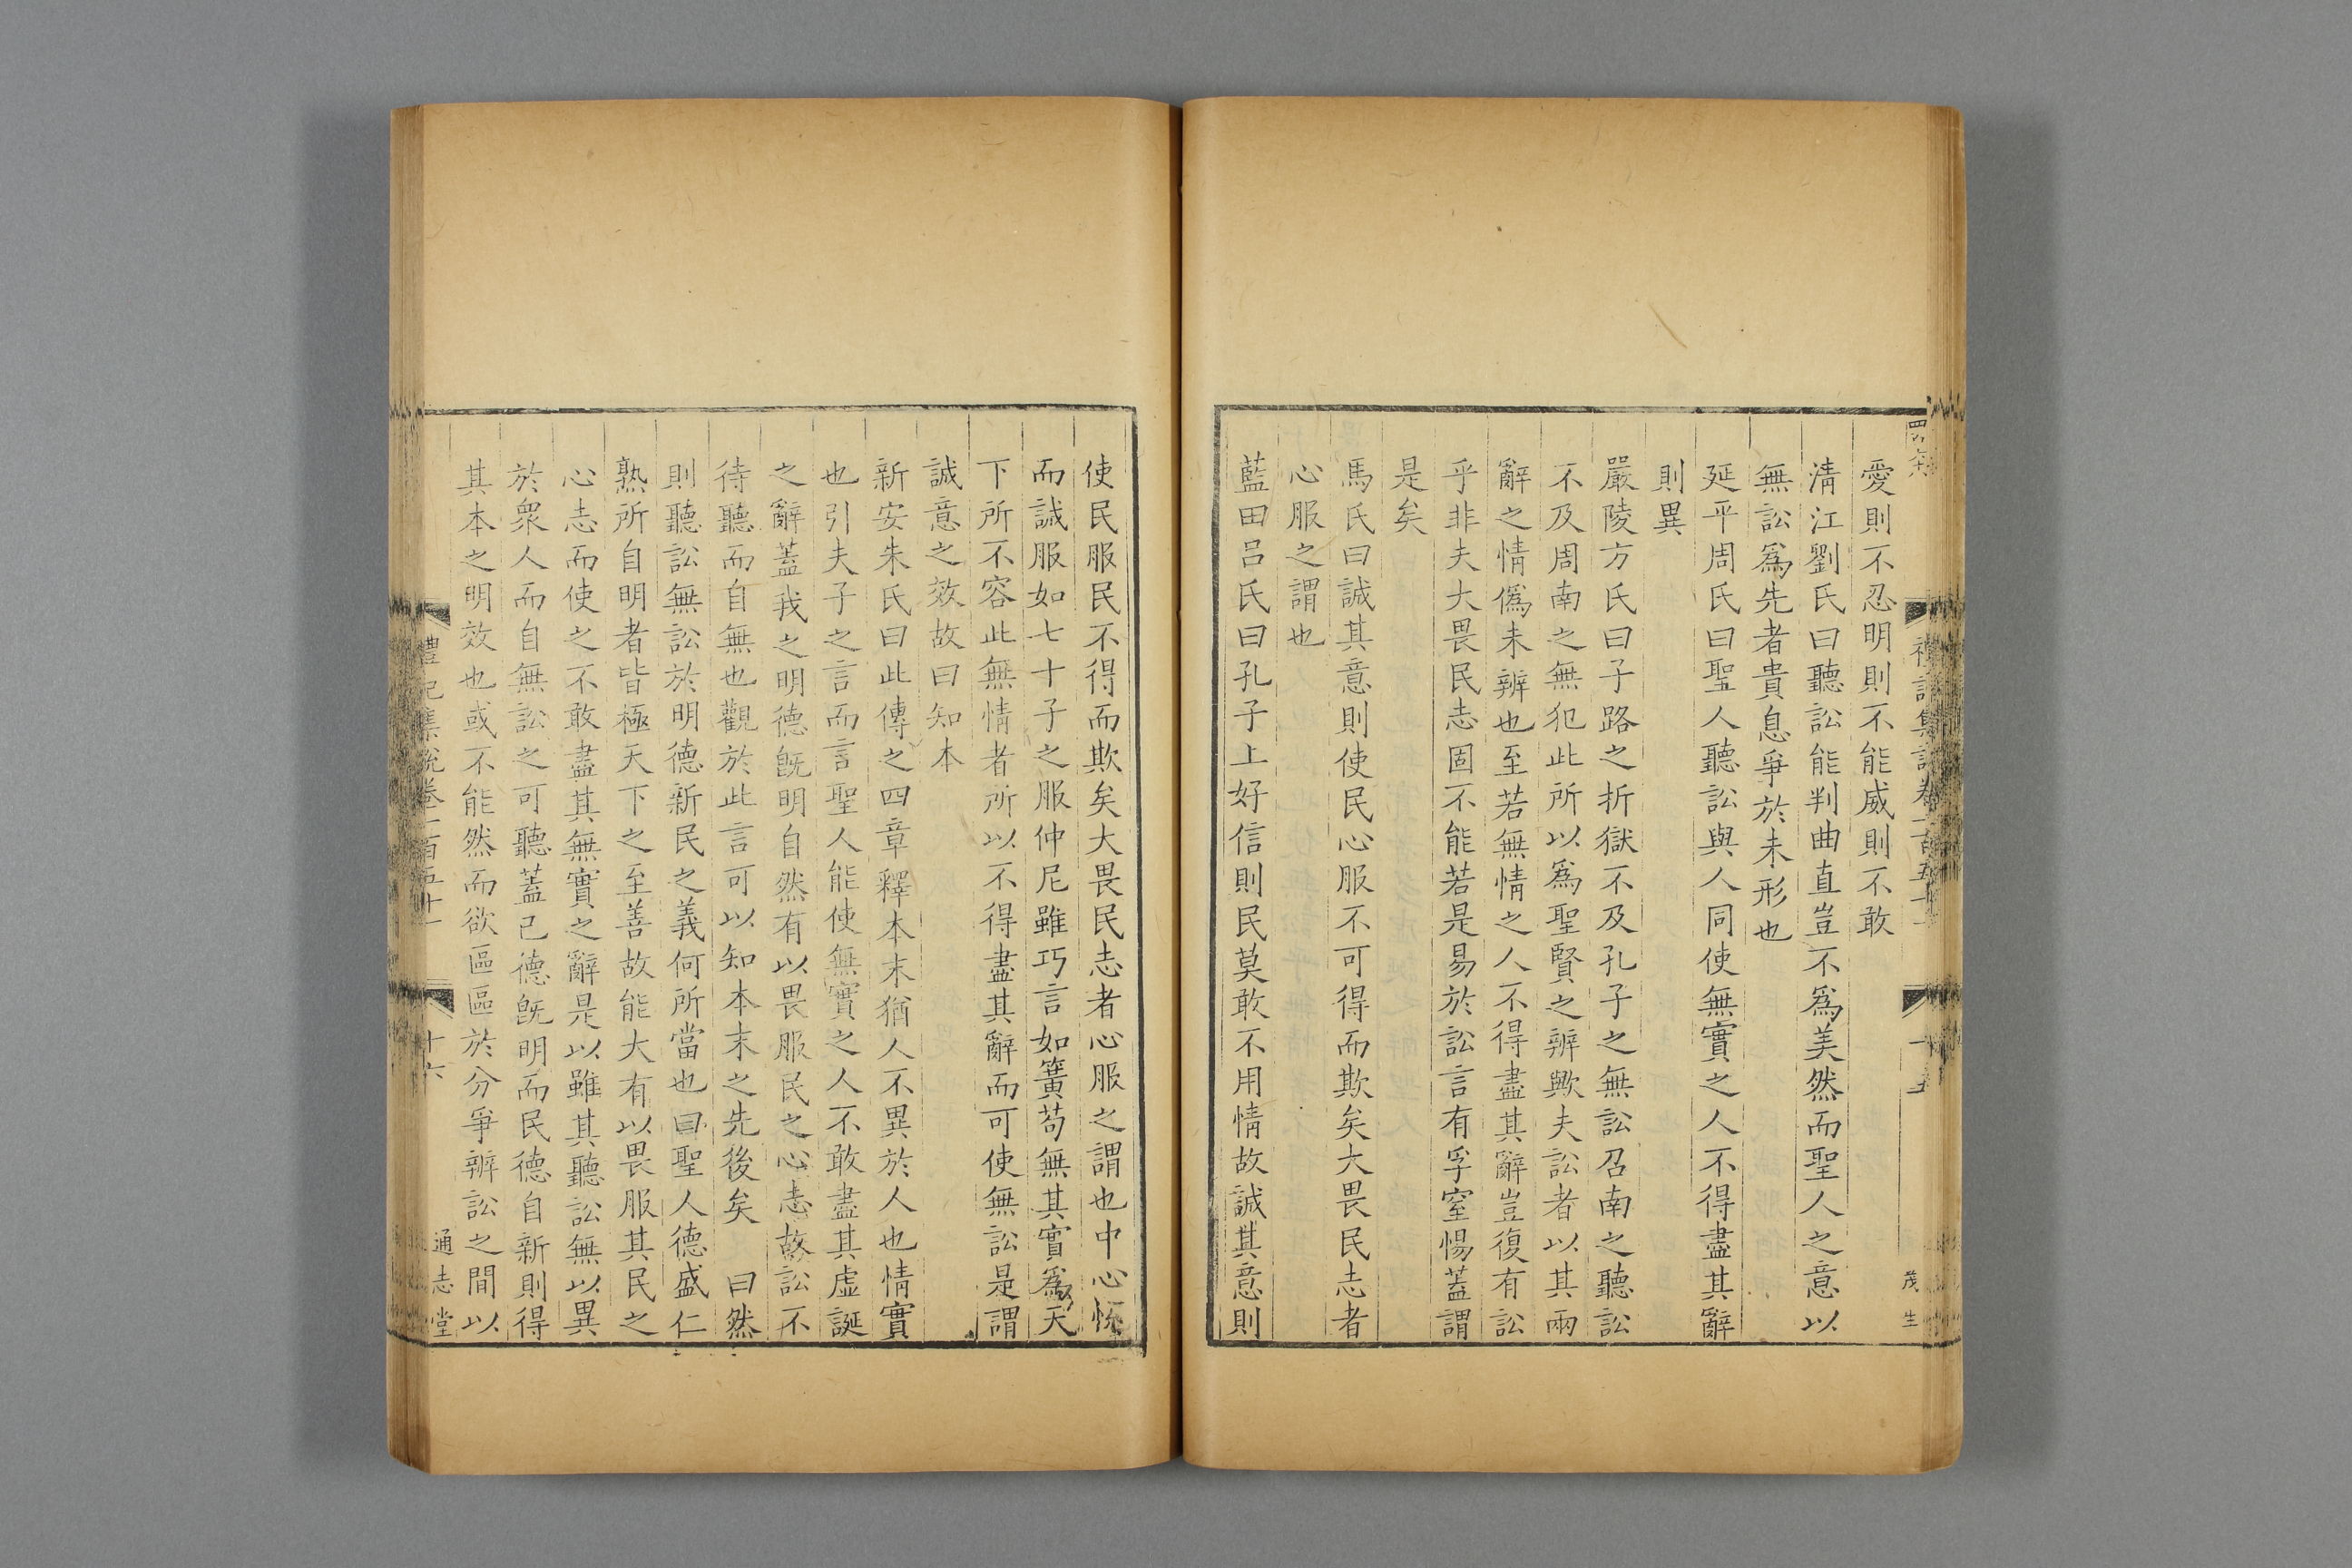 愛則不忍明則不能威則不敢
清江劉氏曰聽訟能判曲直豈不爲美然而聖人之意以
無訟爲先者貴息爭於未形也
延平周氏曰聖人聽訟與人同使無實之人不得盡其辭
則異
嚴陵方氏曰子路之折獄不及孔子之無訟召南之聽訟
不及周南之無犯此所以爲聖賢之辨歟夫訟者以其兩
辭之情僞未辨也至若無情之人不得盡其辭豈復有訟
乎非夫大畏民志固不能若是易於訟言有孚窒惕蓋謂
是矣
馬氏曰誠其意則使民心服不可得而欺矣大畏民志者
心服之謂也
藍田呂氏曰孔子上好信則民莫敢不用情故誠其意則
茂生
使民服民不得而欺矣大畏民志者心服之謂也中心悅
而誠服如七十子之服仲尼雖巧言如簧苟無其實爲天
下所不容此無情者所以不得盡其辭而可使無訟是謂
誠意之效故曰知本
新安朱氏曰此傳之四章釋本末猶人不異於人也情實
也引夫子之言而言聖人能使無實之人不敢盡其虛誕
之辭蓋我之明德旣明自然有以畏服民之心志故訟不
待聽而自無也觀於此言可以知本末之先後矣 曰然
則聽訟無訟於明德新民之義何所當也曰聖人德盛仁
熟所自明者皆極天下之至善故能大有以畏服其民之
心志而使之不敢盡其無實之辭是以雖其聽訟無以異
於衆人而自無訟之可聽蓋己德旣明而民德自新則得
其本之明效也或不能然而欲區區於分爭辨訟之間以
禮記集說卷一百五十一
十六
通志堂